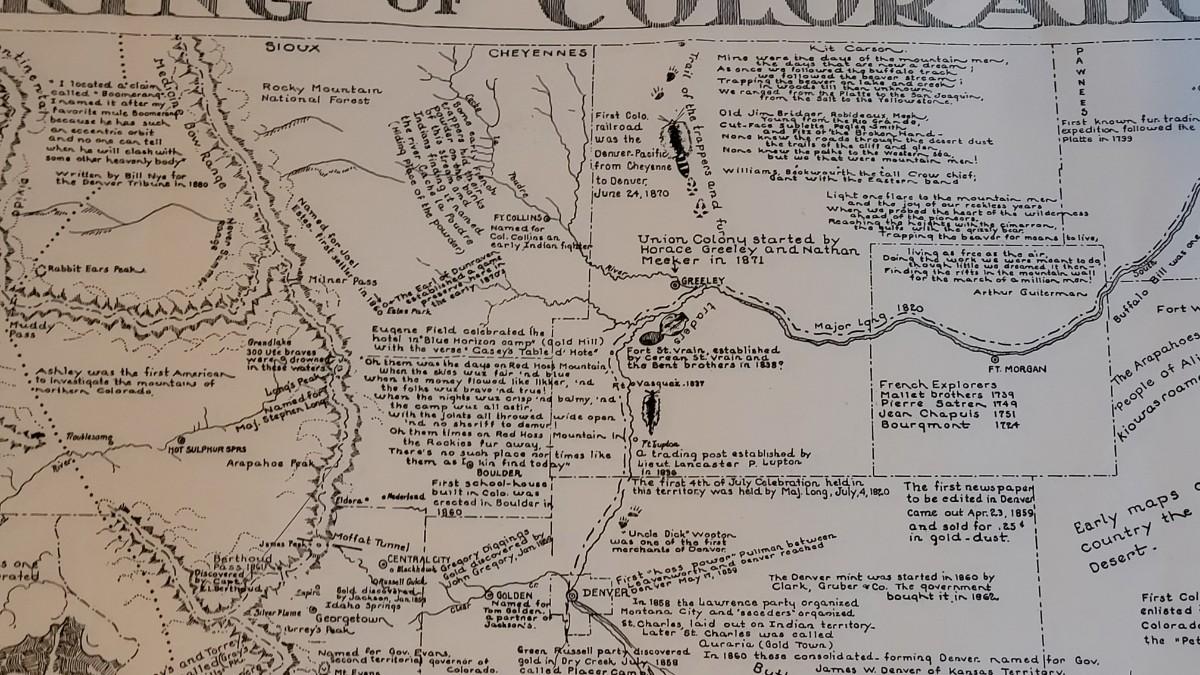 KING OF COLORADO
SIOUX
CHEYENNES
PAWNEES
Rocky Mountain
National Forest
"I located a claim
called "Boomerang".
I named it after my
favorite mule Boomerang
because he has such
an eccentric orbit
and no one can tell
when he will clash with
some other heavenly body"
Written by Bill Nye for
the Denver Tribune in 1880
Medicine Bow Range
Never Summer
Range
Rabbit Ears Peak
Muddy
Pass
Named for Joel
Estes, first settler
in 1860
Milner Pass
Some early French
trappers hid their
powder on the banks
this stream and
Indians finding it named
the river Cache la Poudre
(Hiding place of the powder)
Cache
Poudre
FT. COLLINS
Named for
Col. Collins an
early Indian fighter
First Colo.
railroad
was the
Denver-Pacific
from Cheyenne
to Denver,
June 24, 1870
Trail of the trappers and fur
traders
Kit Carson.
Mine were the days of the mountain men,
days that are now a dream;
As once we followed the buffalo track
we followed the beaver stream;
Trapping the beaver on lake and creek
in woods till then unknown
We ranged from the Platte to the San Joaquin,
from the Salt to the Yellowstone.
Old Jim Bridger, Robideaux, Meek,
Young from the Rio Grande,
Cut-Face Sublette, Pegleg Smith
and Fitz of the Broken Hand-
the desert dust
the trails of the cliff and glen
None knew the paths to the Western sea
but we that were mountain men!
Williams, Beckwourth the tall Crow chief;
Gant with the Eastern band
Light one flare to the mountain men
and the joy of our reckless years
When we probed the heart of the wilderness
Trapping the beaver for means to live,
living as free as the air.
Doing the work we were meant to do
though little we dreamed it then-
Finding the rifts in the mountain wall
for the march of a million men!
Arthur Guiterman
First known fur trading
expedition followed the
Platte in 1799
Union Colony started by
Horace Greeley and Nathan
Meeker in 1871
GREELEY
The Earl of Dunraven
established
the early 1870s
Estes Park
Major Long 1820
South
Buffalo Bill was one
Fort
FT. MORGAN
French Explorers
Mallet brothers 1739
Pierre Satren 1749
Jean Chapuis 1751
Bourgmont 1724
The Arapahoes
"People of
Kiowas roam
Eugene Field celebrated the
hotel in "Blue Horizon camp" (Gold Hill)
with the verse "Casey's Table d'Hote"
"Oh them was the days on Red Hoss Mountain,
When the skies wuz fair 'nd blue
When the money flowed like likker, 'nd
the folks wuz brave 'nd true!
When the nights wuz crisp 'nd balmy, 'nd
the camp wuz all astir,
with the joints all throwed wide open
'nd no sheriff to demur
Oh them times on Red Hoss Mountain in
the Rockies fur away,
There's no such place nor times like
them as I kin find today"
Fort St. Vrain, established
by Cerean St. Vrain and
the Bent brothers in 1838?
Vasquez, 1837
Ft Lupton
A trading post established by
Lieut Lancaster P. Lupton
in 1836
Grandlake
300 Ute braves
were drowned
in these waters
Ashley was the first American
to investigate the mountains of
northern Colorado.
Long's Peak
Named for
Maj. Stephen Long
Troublesome
River
HOT SULPHUR SPRS
Arapahoe Peak
BOULDER
First school-house
built in Colo. was
erected in Boulder in
1860
The first 4th of July Celebration held in
this territory was held by Maj. Long, July, 4, 1820
The first newspaper
to be edited in Denver
came out Apr. 23, 1859
and sold for .25¢
in gold-dust.
Early maps
country the
Desert.
Eldora
Nederland
James Peak
Moffat Tunnel
CENTRAL CITY
Blackhawk
Gregory Diggings
Gold discovered by
John Gregory, Jan. 1859
"Uncle Dick" Wooton
was one of the first
merchants of Denver.
First "hoss power" Pullman between
Leavenworth and Denver reached
Denver May 17, 1859
Berthoud
Pass 1861
Discovered
by Capt.
E.L. Berthoud
Empire
Russell Gulch
Gold discovered
by Jackson, Jan. 1859
Idaho Springs
Silver Plume
Georgetown
Clear
Cr.
GOLDEN
Named for
Tom Golden,
a partner of
Jackson's.
DENVER
The Denver mint was started in 1860 by
Clark, Gruber & Co. The government
bought it in 1862.
In 1858 the Lawrence party organized
Montana City and "seceders" organized
St. Charles, laid out on Indian territory-
Later St. Charles was called
Auraria (Gold Town)
In 1860 these consolidated- forming Denver named for Gov.
James W. Denver of Kansas Territory.
Green Russell party discovered
gold in Dry Creek July 1858
called Placer Camp
Named for Gov. Evans,
second territorial governor of
Colorado.
Mt Evans
First Col
enlisted
Colorado
the "Pet